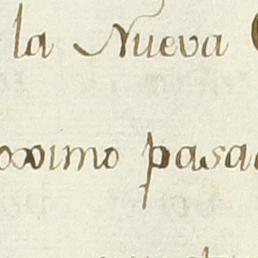 la Nueva
oximo pasa